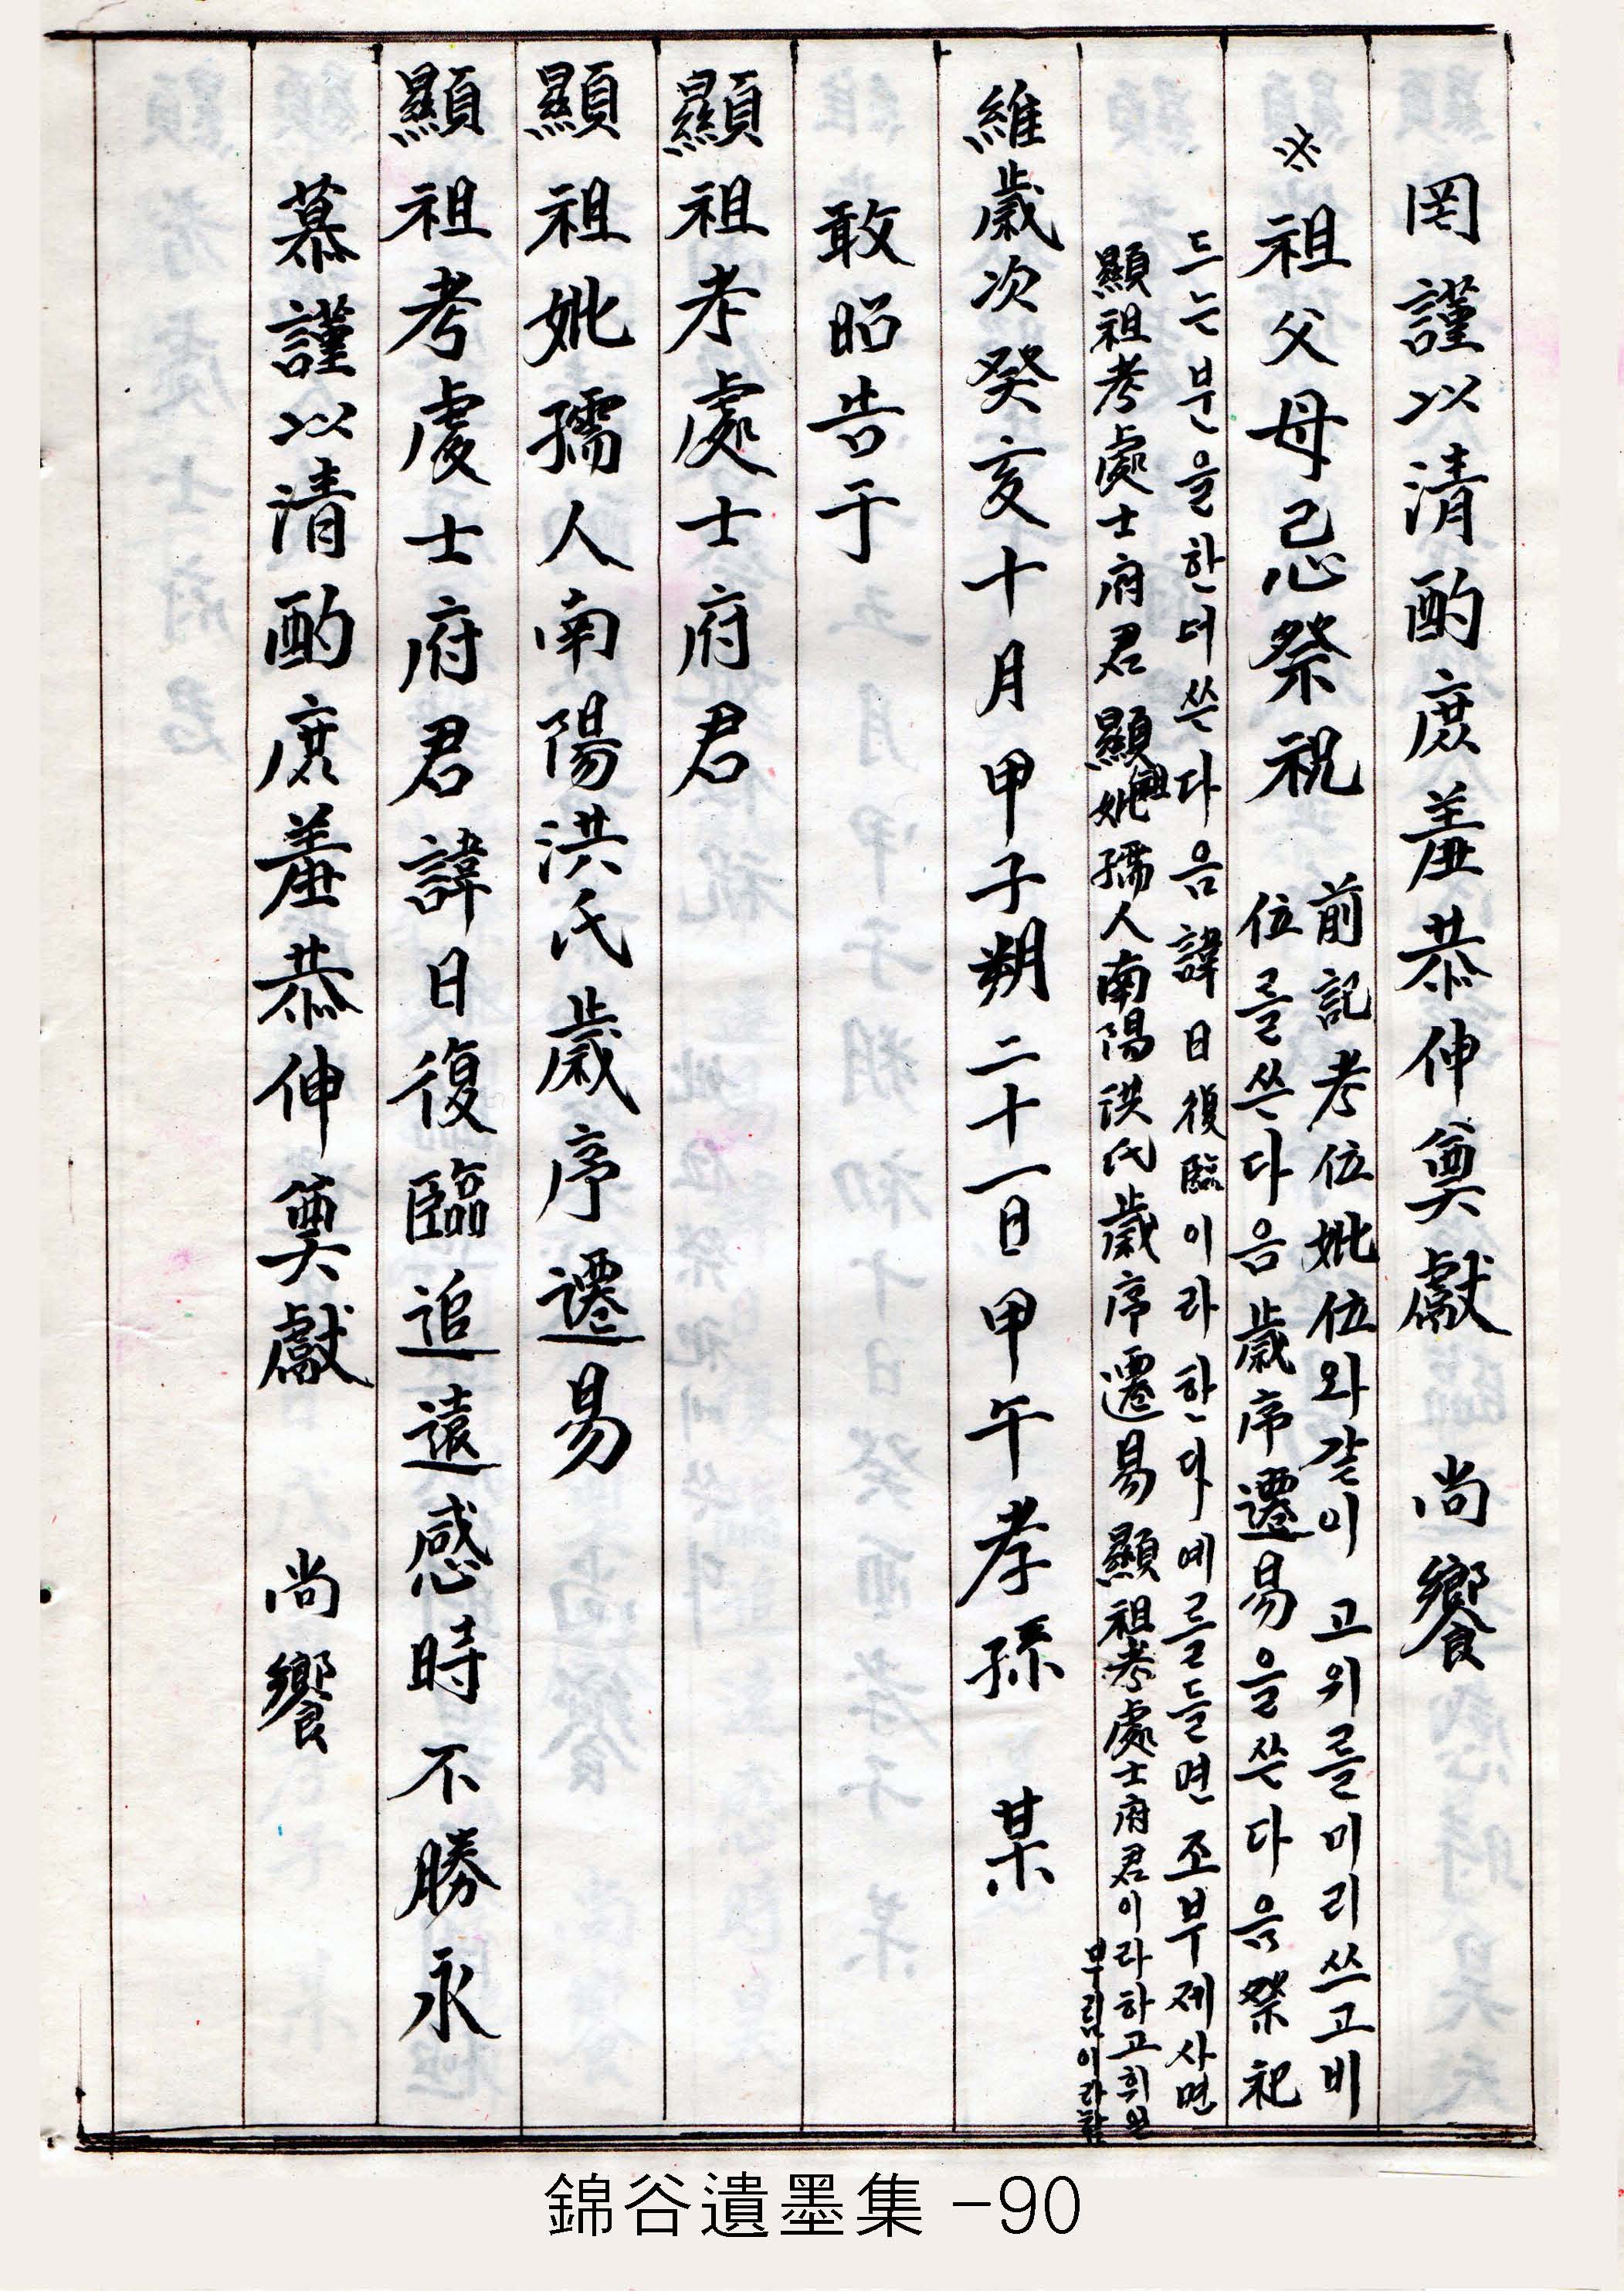 罔謹以清酌庶羞恭伸奠獻 尚饗
※祖父母忌祭祝 前記考位妣位와같이 고위를미리쓰고비
位를쓴다음歲序遷易을쓴다음祭祀
드는분을한더쓴다음諱日復臨이라한다예를들면조부제사면
顯祖考處士府君 顯祖妣孺人南陽洪氏歲序遷易 顯祖考處士府君이라하고휘일
부림이라함
維歲次癸亥十月甲子朔二十一日甲午孝孫 某
敢昭告于
顯祖考處士府君
顯祖妣孺人南陽洪氏歲序遷易
顯祖考處士府君諱日復臨追遠感時不勝永
慕謹以清酌庶羞恭伸奠獻 尚饗
錦谷遺墨集 -90